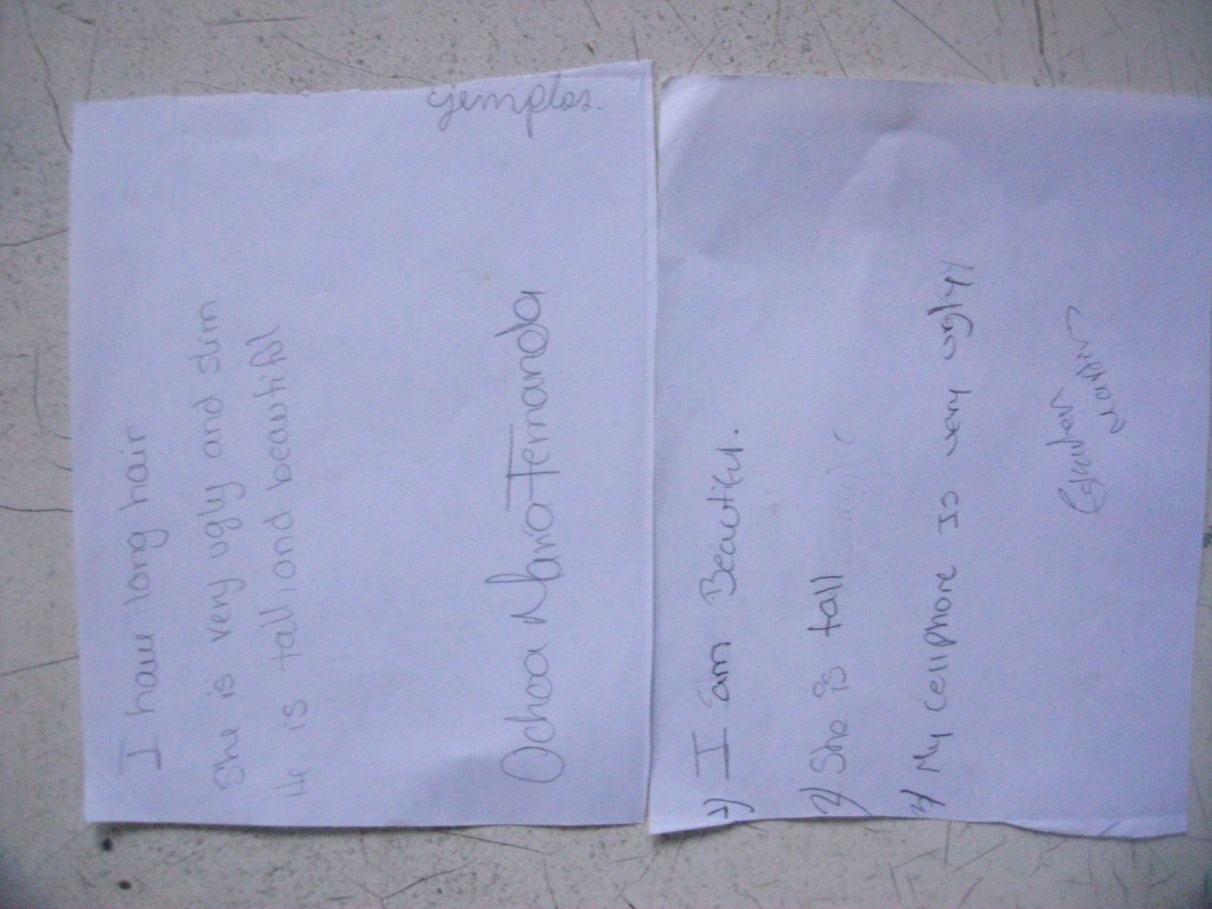 I have long hair
She is very ugly and slim
He is tall and beautiful
Ochoa Maria Fernanda
ejemplos.
1) I am Beautiful.
2) She is tall
3) My cellphone Is very ugly